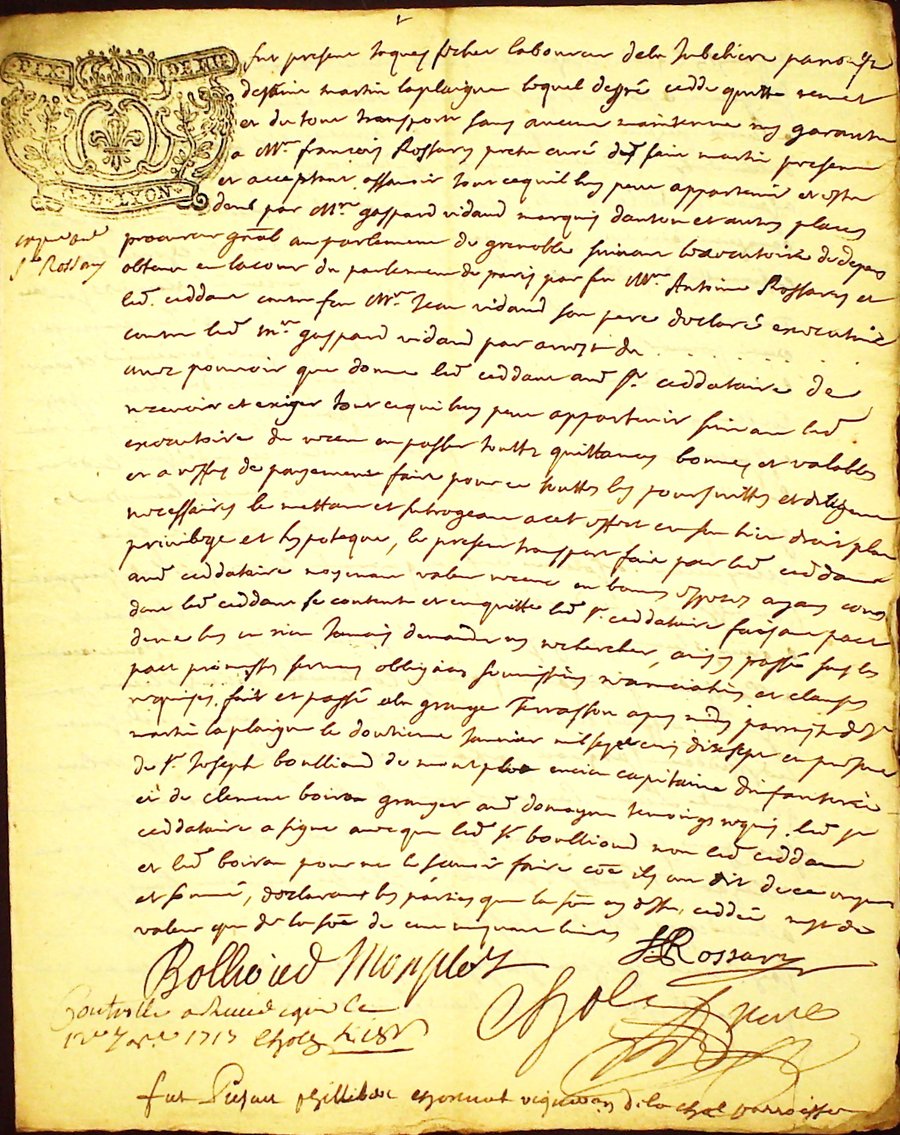 SIX DENIE
D. LYON
fut present Jaques focher laboureur de la Jubeliere parroisse
de st martin laplaigne lequel de gré cedde quitte remet
et du tout transporte sans aucune maintenue ny garantie
a Mre françois Rossary pretre curé de sain martin present
et acceptant assavoir tout ce quil luy peut appartenir et estre
deub par Mre gaspard vidaud marquis danton et autres places
procureur gnal au parlement de grenoble suivant lexecutoire de depens
Sr Rossary
obtenu en la cour du parlement de paris par feu Mre Antoine Rossary et
led. ceddant contre feu Mre Jean vidaud son pere declaré executoire
contre led mre gaspard vidaud par arrest du . . . . . . . .
avec pouvoir que donne led ceddant aud sr ceddataire de
recevoir et exiger tout ce qui luy peut appartenir suivant led
executoire du receu en passer touttes quittances bonnes et valables
et a reffus de payement faire pour ce touttes les poursuittes et diligences
necessaires le mettant et subrogeant a cet effect en son lieu droit place
privilege et hypoteque, le present transport fait par led ceddant
aud ceddataire moyenant valeur receue en bonnes especes ayant cours
dont led ceddant se contente et en quitte led sr ceddataire faisant pact
de ne luy en rien Jamais demander ny rechercher, ainsy passé sous les
pact promesses serments obligations soumissions renonciations et clauses
requises. fait et passé a la grange Terrasson apres midy parroisse de st
martin laplaigne le douzieme Janvier mil sept cens dix sept en presence
de sr Joseph boullioud de montplos encien capitaine dinfanterie
et de clement boiron granger aud domayne temoings requis. led sr
ceddataire a signé avecque led sr boullioud non led ceddant
et led boiron pour ne le scavoir faire coe ils ont dit de ce enquis
et sommé, declarant les parties que la soe cy dess. ceddée nest de
valeur que de la soe de cent cinquante livres
Bollioud Monplos Rossary
Chol
Controllé a
12e Janr. 1717 Chol
fut Present phillibert vigneron de la parroisse